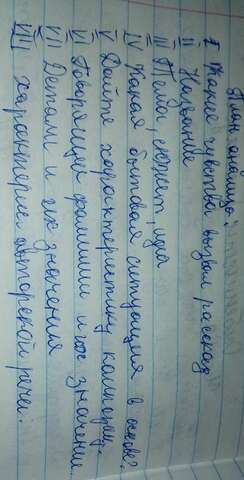 План анализа:
I Какие чувства вызвал рассказ
II Название
III Тема, сюжет, идея
IV Какая бытовая ситуация в основе?
V Дайте характеристику каждому.
VI Говорящие фамилии и их значения
VII Детали и их значения
VIII Характерис. авторской речи.